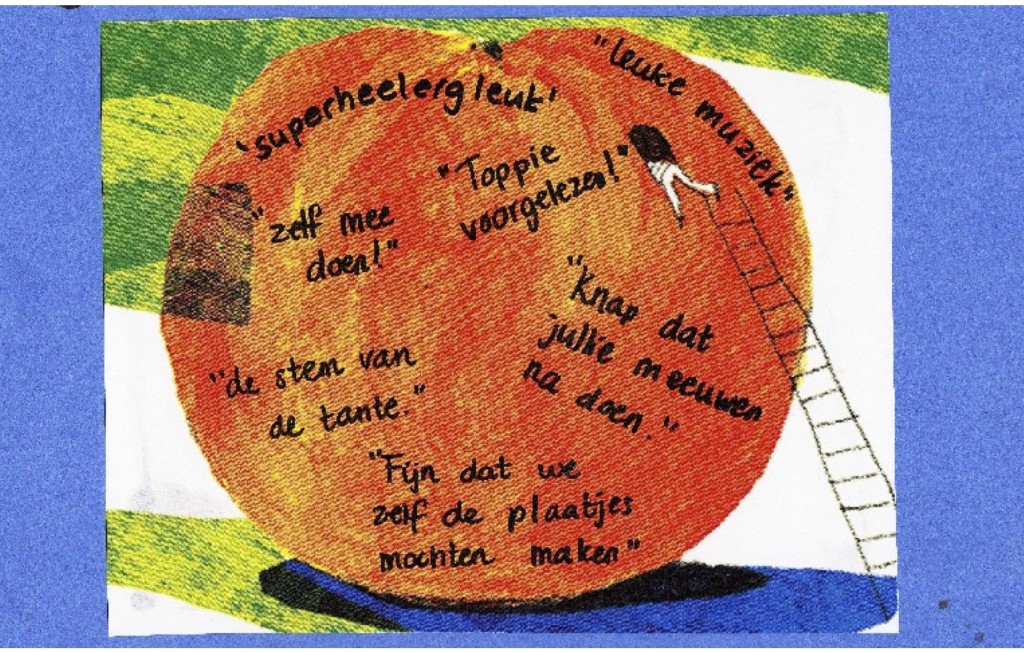 'superheelerg leuk'
"leuke muziek"
"Toppie
voorgelezen!"
"zelf mee
doen!"
"Knap dat
jullie meeuwen
na doen."
"de stem van
de tante."
"Fijn dat we
zelf de plaatjes
mochten maken"